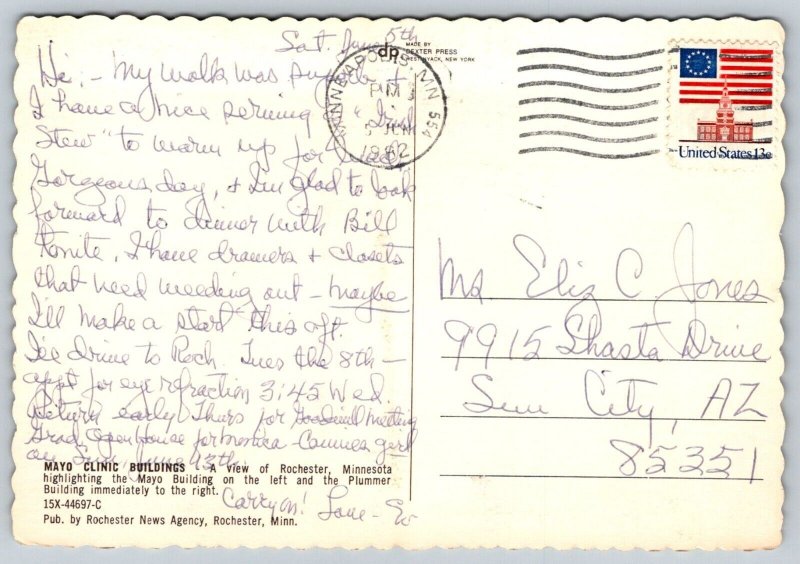 Sat. June 5th
Hi:- My walk was superb +
I have a nice serving "Irish
Stew" to warm up for
Gorgeous day, + I'm glad to look
forward to dinner with Bill
tonite. I have drawers + closets
that need weeding out - maybe
I'll make a start this aft.
I'll drive to Roch. Tues the 8th -
appt for eye refraction 3:45 Wed.
Return early Thurs for Goodwill meeting
Grad. Open House for Cannon
on Sun. June 13th.
Carry on! Love - Ev
MAYO CLINIC BUILDINGS A view of Rochester, Minnesota
highlighting the Mayo Building on the left and the Plummer
Building immediately to the right.
15X-44697-C
Pub. by Rochester News Agency, Rochester, Minn.
dp
MADE BY
DEXTER PRESS
WEST NYACK, NEW YORK
MINNEAPOLIS, MN 554
PM
5 JUN
1982
United States 13c
Ms Eliz C Jones
9915 Shasta Drive
Sun City, AZ
85351